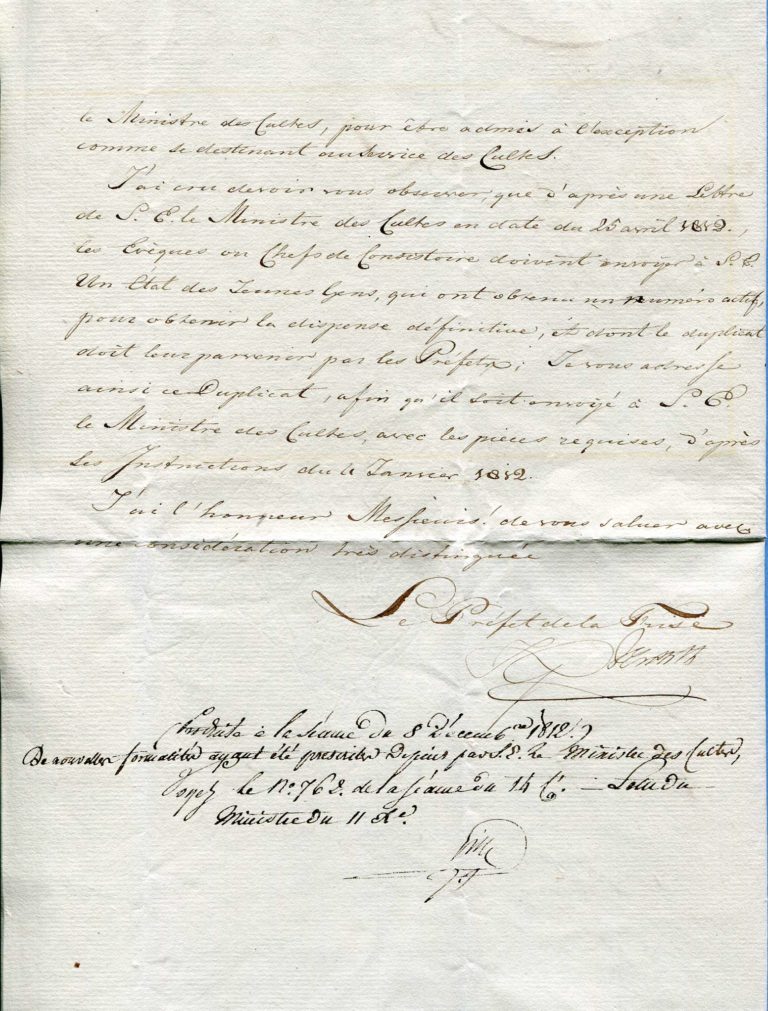 le Ministre des Cultes, pour être admis à l'exception
comme se destinant au service des Cultes.
J'ai cru devoir vous observer, que d'après une Lettre
de S. E. le Ministre des Cultes en date du 25 avril 1812.,
les Evèques ou Chefs de Consistoire doivent envoyer à S. E.
Un Etat des Jeunes Gens, qui ont obtenu un numéro actif,
pour obtenir la dispense définitive, et dont le duplicat
doit leur parvenir par les Préfets; Je vous adresse
ainsi ce Duplicat, afin qu'il soit envoyé à S. E.
le Ministre des Cultes, avec les pièces requises, d'après
ses Instructions du 4 Janvier 1812.
J'ai l'honneur Messieurs! de vous saluer avec
une considération très distinguée
Le Préfet de la Frise
à la séance du 8 Décembre 1812.
De nouvelles formalités ayant été prescrites depuis par S. E. le Ministre des Cultes,
Voyez le No. 762. de la séance du 14 — Lettre du
Ministre du 11